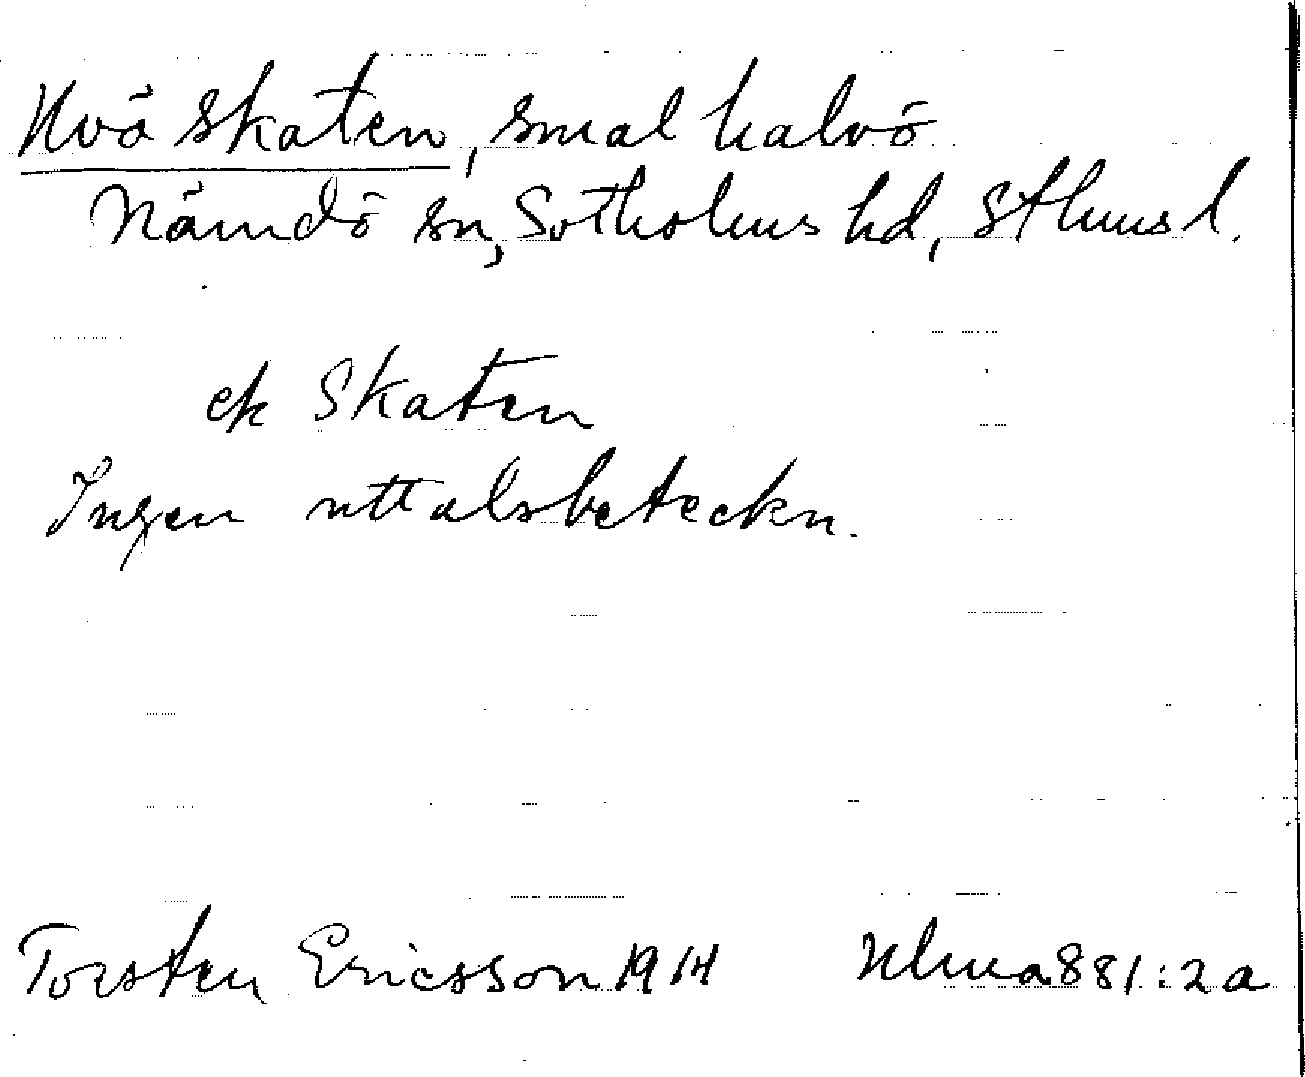 Uvö skaten, smal halvö
Nämdö sn, Sotholms hd, Sthms l.
ek Skaten
Ingen uttalsbeteckn.
Torsten Ericsson 1914 Ulma 881:2a